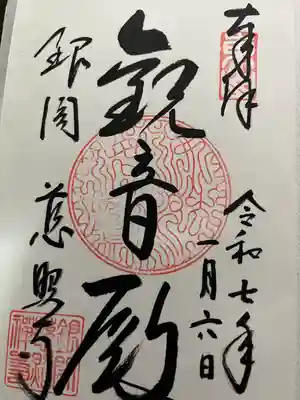 奉拝
令和七年
一月六日
観音殿
銀閣
慈照寺